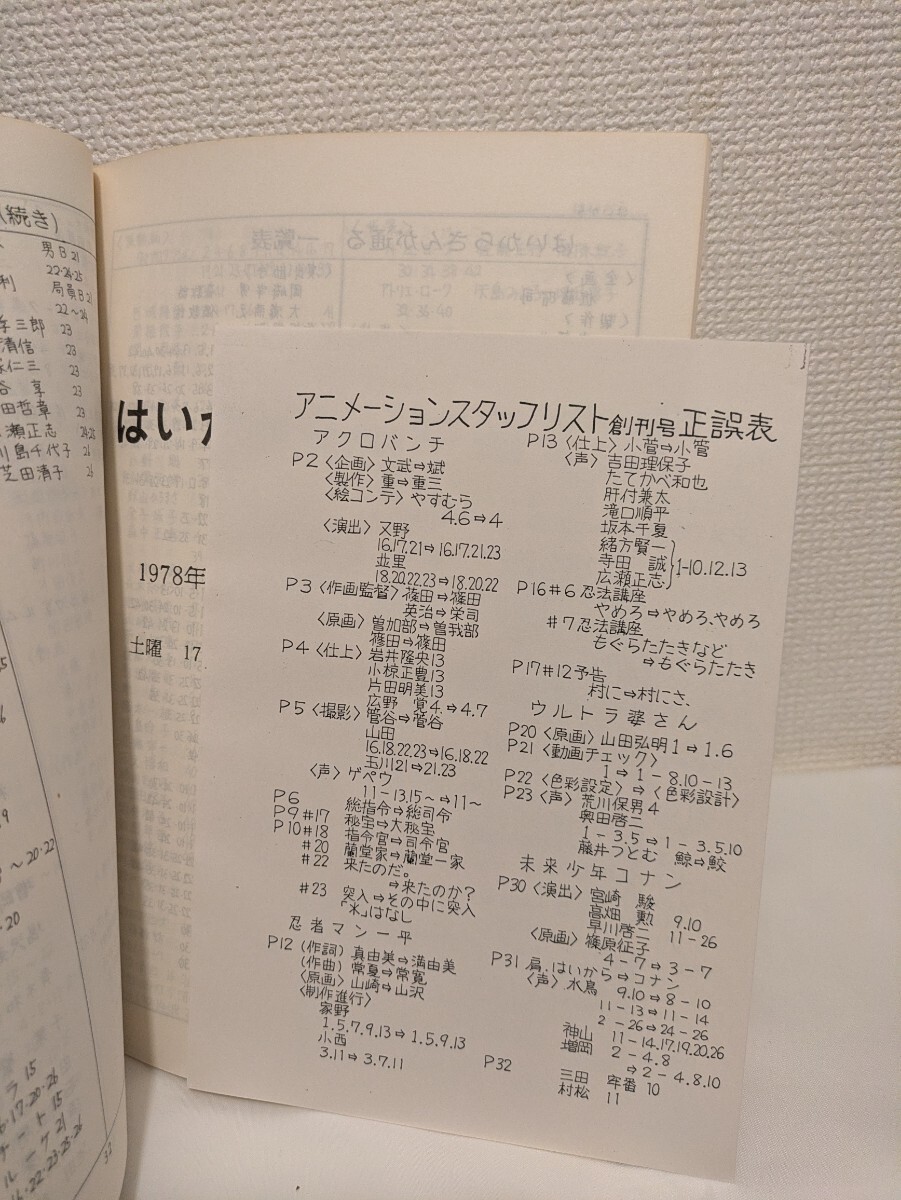 (続き)
男B21
22・24・25
利 局員B21
22〜24
孝三郎 23
清信 23
仁三 23
谷 享 23
田哲章 23
瀬正志 24・25
川島千代子 26
芝田清子 26
ラ 15
6・17・20・26
ート 15
ルーケ 21
16・22・23・25・26
32
はいか
1978年
土曜 17
はいからさんが通る 一覧表
アニメーションスタッフリスト創刊号正誤表
アクロバンチ
P2〈企画〉文武⇨斌
〈製作〉重⇨重三
〈絵コンテ〉やすむら
4.6⇨4
〈演出〉又野
16.17.21⇨16.17.21.23
並里
18.20.22.23⇨18.20.22
P3〈作画監督〉篠田⇨篠田
英治⇨栄司
〈原画〉曽加部⇨曽我部
篠田⇨篠田
P4〈仕上〉岩井隆央13
小椋正豊13
片田明美13
広野 覚4.⇨4.7
P5〈撮影〉管谷⇨菅谷
山田
16.18.22.23⇨16.18.22
玉川21⇨21.23
〈声〉ゲペウ
11-13.15〜⇨11〜
P6 総指令⇨総司令
P9#17 秘宝⇨大秘宝
P10#18 指令官⇨司令官
#20 蘭堂家⇨蘭堂一家
#22 来たのだ。
⇨来たのか?
#23 突入⇨その中に突入
「氷」はなし
忍者マン一平
P12(作詞)真由美⇨満由美
(作曲)常夏⇨常寛
〈原画〉山崎⇨山沢
〈制作進行〉
家野
1.5.7.9.13⇨1.5.9.13
小西
3.11⇨3.7.11
P13〈仕上〉小菅⇨小管
〈声〉吉田理保子
たてかべ和也
肝付兼太
滝口順平
坂本千夏
緒方賢一
寺田 誠
広瀬正志}1-10.12.13
P16#6忍法講座
やめろ⇨やめろ,やめろ
#7忍法講座
もぐらたたきなど
⇨もぐらたたき
P17#12予告
村に⇨村にさ、
ウルトラ婆さん
P20〈原画〉山田弘明1⇨1.6
P21〈動画チェック〉
1⇨1-8.10-13
P22〈色彩設定〉⇨〈色彩設計〉
P23〈声〉荒川保男4
奥田啓二
1-3.5⇨1-3.5.10
藤井つとむ 鯨⇨鮫
未来少年コナン
P30〈演出〉宮崎 駿
高畑 勲 9.10
早川啓二 11-26
〈原画〉篠原征子
4-7⇨3-7
P31肩.はいから⇨コナン
〈声〉水鳥 9.10⇨8-10
11-13⇨11-14
2-26⇨24-26
神山 11-14.17.19.20.26
増岡 2-4.8
⇨2-4.8.10
P32 三田 牢番 10
村松 11